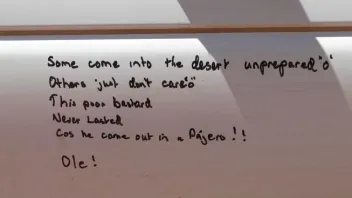 Some come into the desert unprepared "o"
Others just don't care "o"
This poor bastard
Never Lasted
Cos he came out in a Pajero!!
Ole!